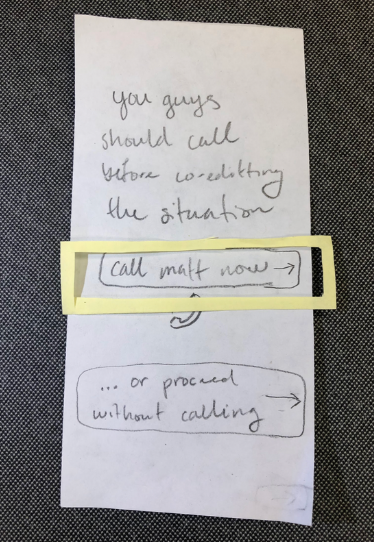 you guys
should call
before co-editting
the situation
call matt now →
... or proceed
without calling →